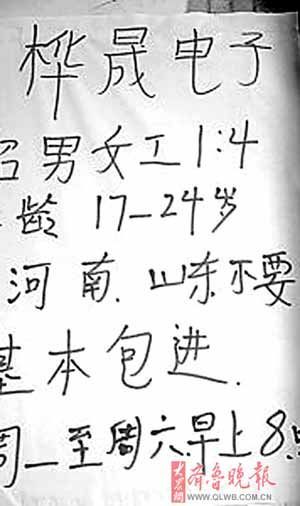 桦晟电子
招男女工1:4
龄 17—24岁
河南.山东不要
基本包进.
周一至周六早上8点
大众网 齐鲁晚报
WWW.QLWB.COM.CN